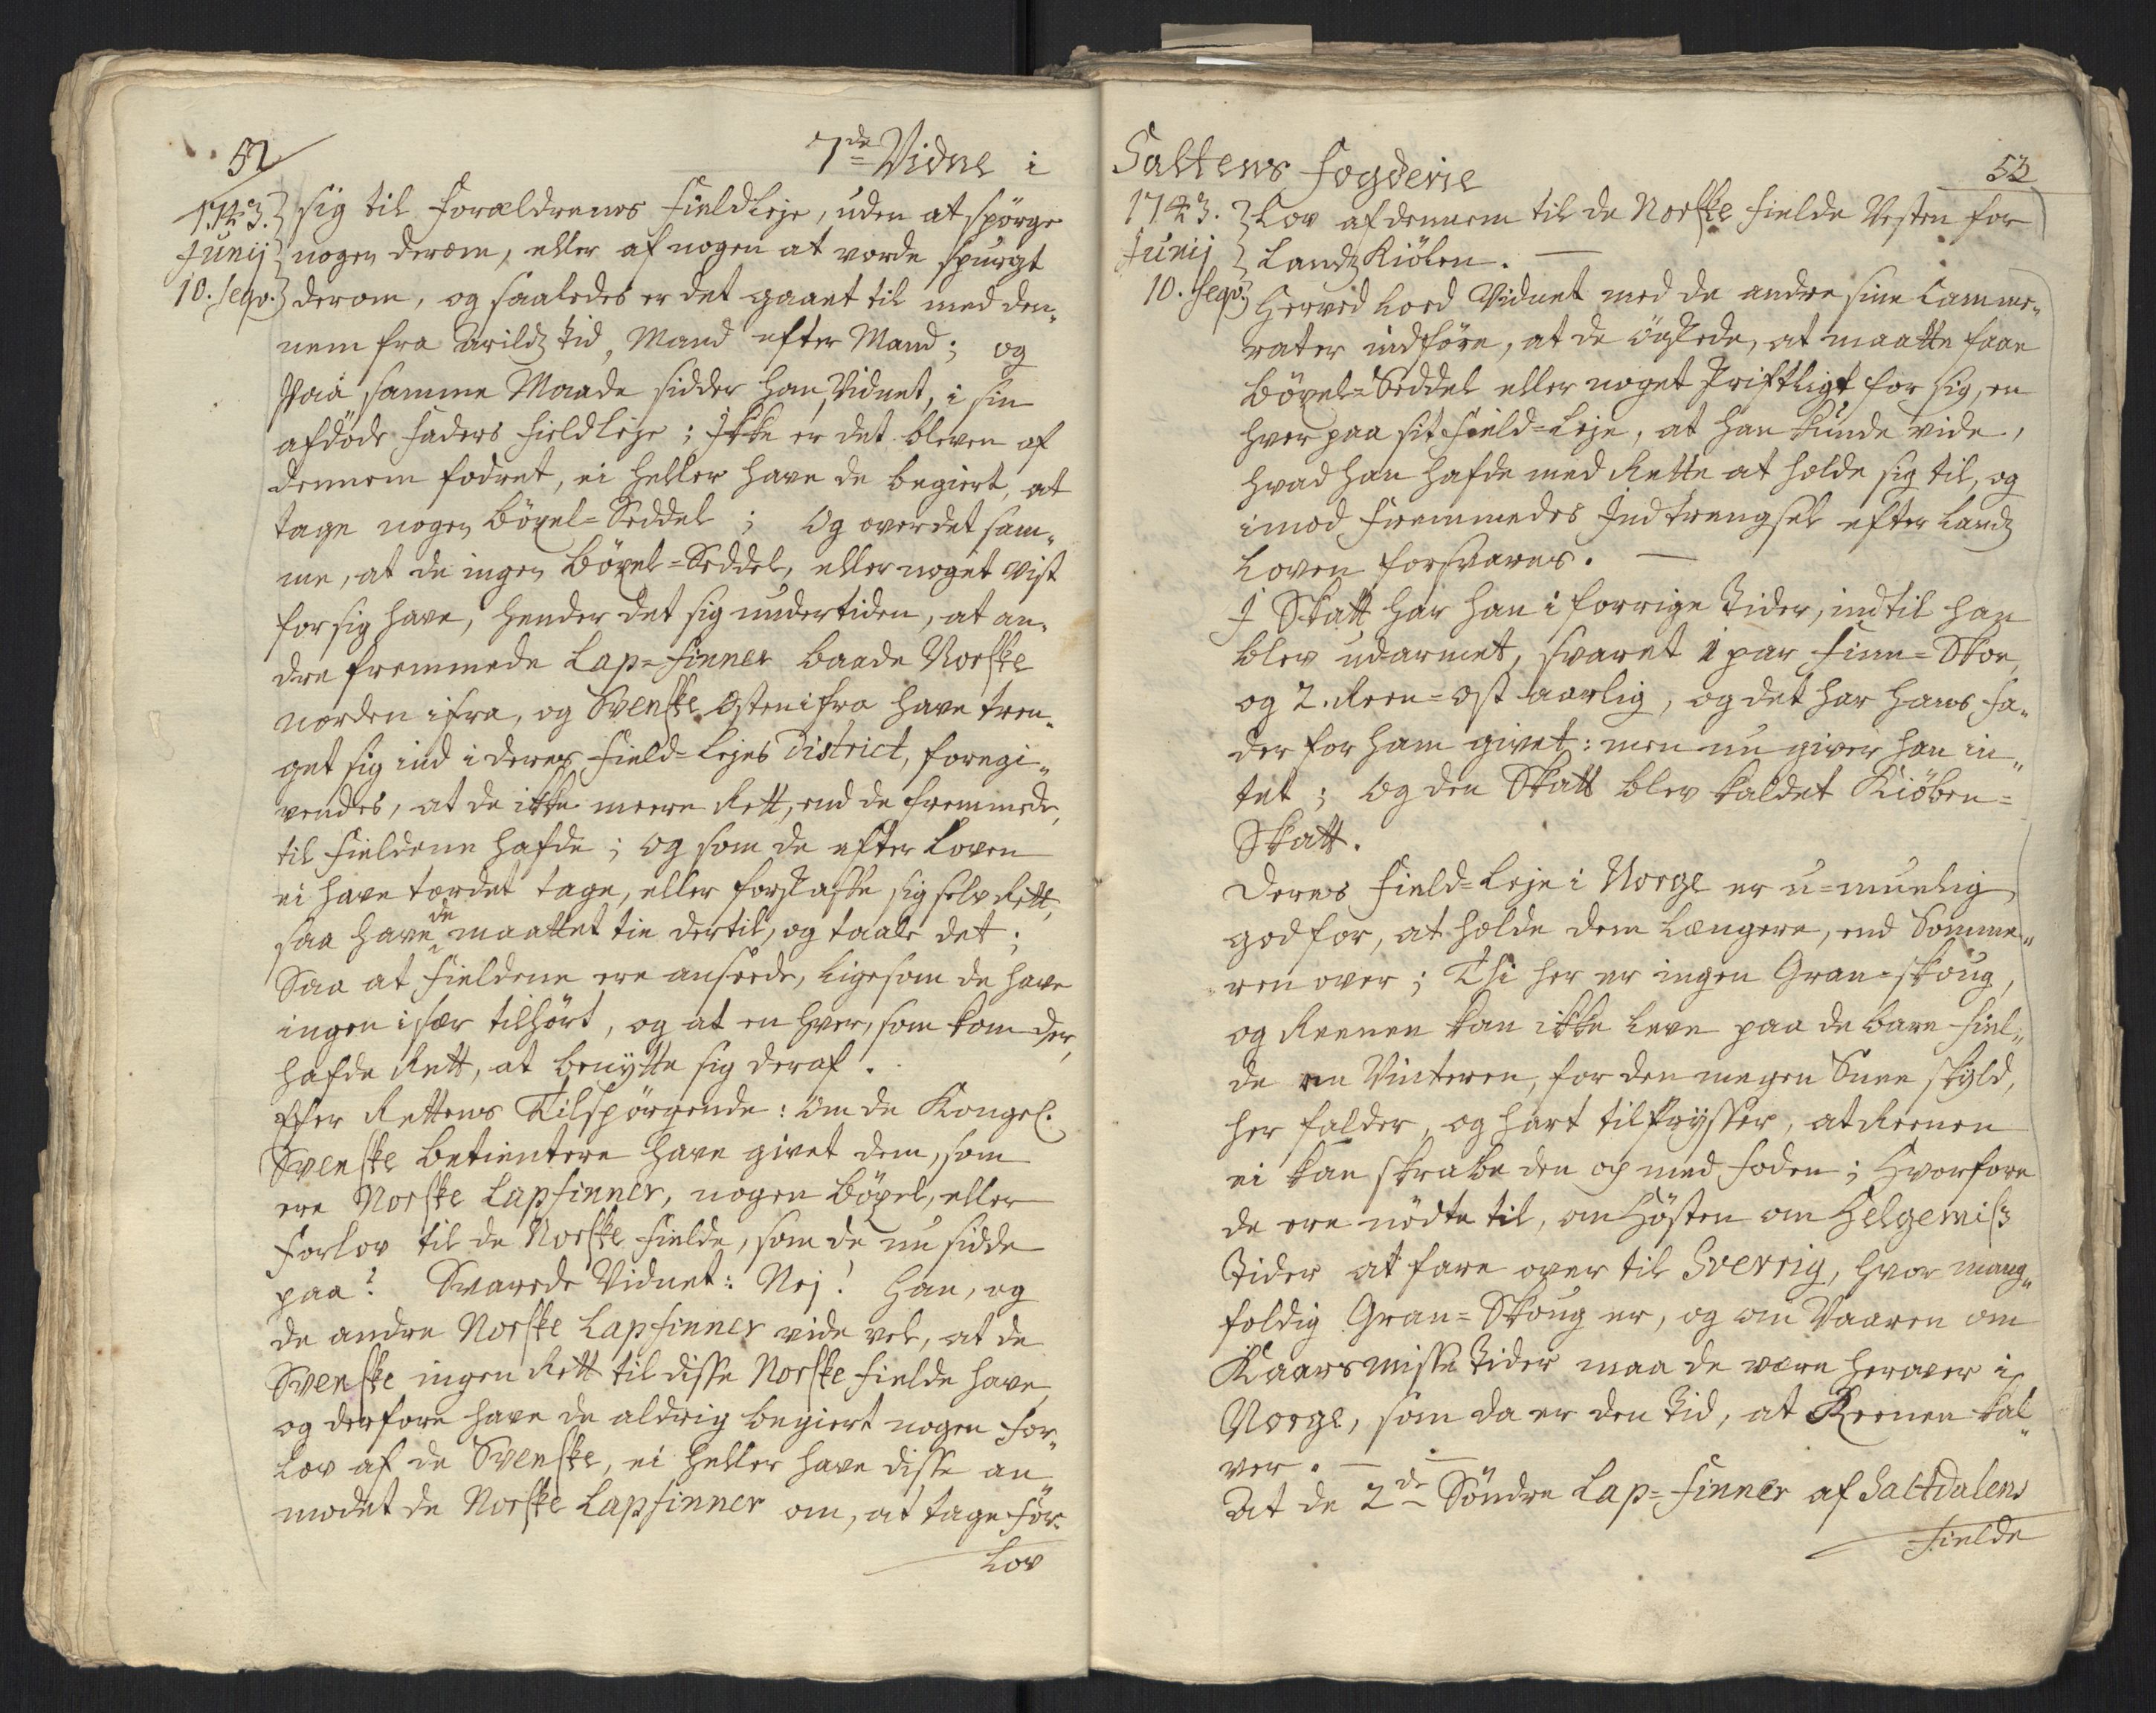 52
7de Vidne i
1743. sig til Forældrenes Fieldleje, uden at spörge
Junij nogen derom, eller af nogen at vorde spurgt
10. seqv. derom, og saaledes er det gaaet til med den„
nem fra Arildz Tid, Mand efter Mand; og
Paa samme Maade sidder han, Vidnet, i sin
afdöde Faders Fieldleje; Ikke er det bleven af
dennem fodret, ei heller have de begiert, at
tage nogen Böxel=Seddel; Og over det sam„
me, at de ingen Böxel=Seddel, eller noget vist
for sig have, hender det sig undertiden, at an„
dre fremmede Lap=Finner baade Norske
norden ifra, og Svenske østen ifra have tren„
get sig ind i deres Field=Lejes District, foregi„
vendes, at de ikke meere Rett, end de fremmede,
til Fieldene hafde; og som de efter Loven
ei have tordet tage, eller forskaffe sig selv Rett,
saa have de maattet tie dertil, og taale det;
Saa at Fieldene ere ansseede, ligesom de have
ingen især tilhört, og at en hver, som kom der,
hafde Rett, at benytte sig deraf.
Efter Rettens Tilspörgende: Om de Kongel.
Svenske Betientere have givet dem, som
ere Norske Lapfinner, nogen Böxel, eller
Forlov til de Norske Fielde, som de nu sidde
paa? Svarede Vidnet: Nej! han, og
de andre Norske Lapfinner vide vel, at de
Svenske ingen Rett til disse Norske Fielde have,
og derfore have de aldrig begiert nogen For„
lov af de Svenske, ei heller have disse an„
modet de Norske Lapfinner om, at tage For„
Lov
Saltens Fogderie
53
1743. Lov af dennem til de Norske Fielde Vesten for
Junij Landz Kiölen. —
10. seqv. Herved lod Vidnet med de andre sine Camme„
rater indföre, at de önskede, at maatte faae
Böxel=Seddel eller noget Skriftligt for sig, en
hver paa sit Field=Leje, at han kunde vide,
hvad han hafde med Rette at holde sig til, og
imod Fremmedes Indtrengsel efter Landz
Loven forsvares. —
I Skatt har han i forrige Tider, indtil han
blev udarmet, svaret 1 par Finn=Skoe,
og 2. Reen=Ost aarlig, og det har hans Fa„
der for ham givet: men nu giver han in„
tet; Og den Skatt blev kaldet Kiöben=
Skatt.
Deres Field=Leje i Norge er u=muelig
god for, at holde dem længere, end Somme„
ren over; Thi her er ingen Gran=skoug,
og Reenen kan ikke leve paa de bare Fiel„
de om Vinteren, for den megen Snee skyld,
her falder, og hart tilfrysser, at Reenen
ei kan skrabe den op med Foden; Hvorfore
de ere nödte til, om Hösten om Helgemiss
Tider at fare over til Sverrig, hvor mang„
foldig Gran=Skoug er, og om Vaaren om
Kaarsmisse Tider maa de være herover i
Norge, som da er den Tid, at Reenen kal„
ver. — —
At de 2de Söndre Lap=Finner af Saltdalens
Fielde